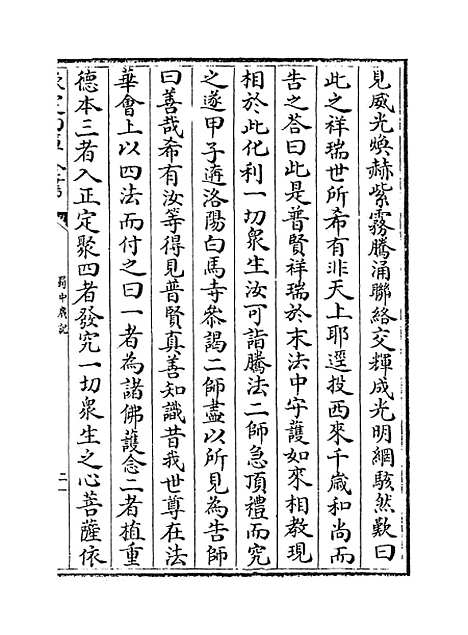 見威光煥赫紫霧騰涌聯絡交輝成光明網駭然歎曰
此之祥瑞世所希有非天上耶逕投西來千歲和尚而
告之答曰此是普賢祥瑞於末法中守䕶如來相教現
相於此化利一切衆生汝可詣騰法二師急頂禮而究
之遂甲子遊洛陽白馬寺叅謁二師盡以所見為告師
曰善哉希有汝等得見普賢真善知識昔我世尊在法
華會上以四法而付之曰一者為諸佛䕶念二者植重
德本三者入正定聚四者發究一切衆生之心菩薩依
蜀中廣記